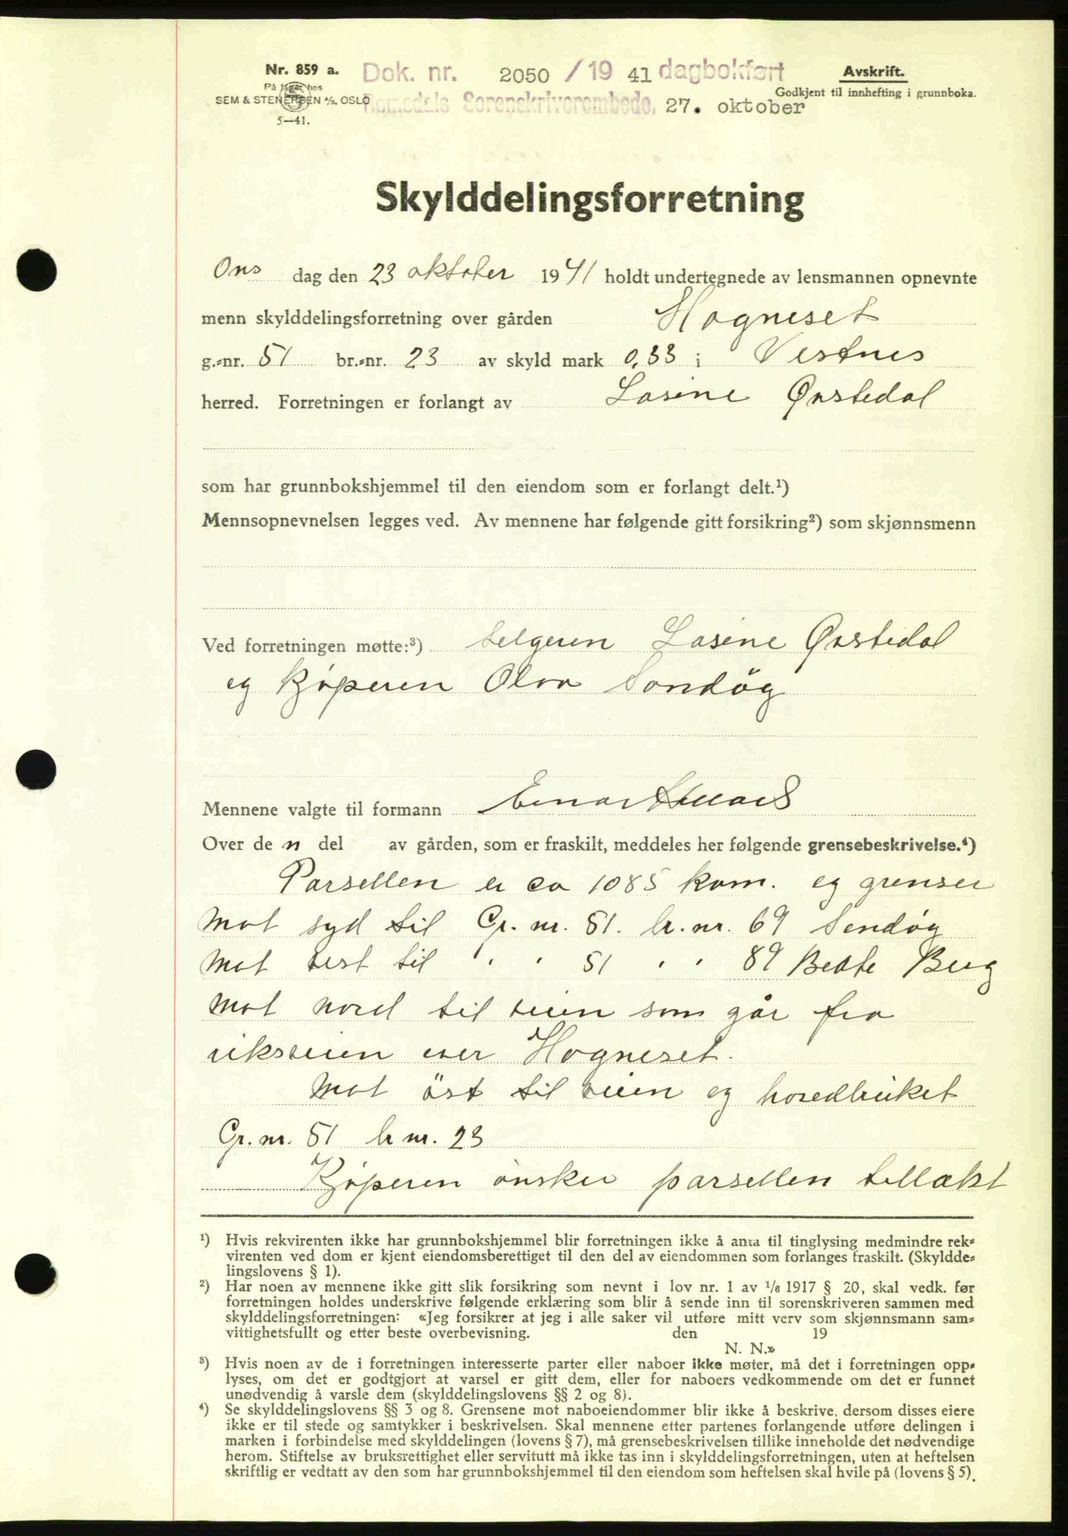 Nr. 859 a. Dok. nr. 2050 /19 41 dagbokført Avskrift.
På lager hos Godkjent til innhefting i grunnboka.
SEM & STENERSEN A/S, OSLO Romsdals Sorenskriverembede, 27. oktober
5—41.
Skylddelingsforretning
Ons dag den 23 oktober 1941 holdt undertegnede av lensmannen opnevnte
menn skylddelingsforretning over gården Hogneset
g.-nr. 51 br.-nr. 23 av skyld mark 0,33 i Vestnes
herred. Forretningen er forlangt av Lasine Ørstedal
som har grunnbokshjemmel til den eiendom som er forlangt delt.¹)
Mennsopnevnelsen legges ved. Av mennene har følgende gitt forsikring²) som skjønnsmenn
Ved forretningen møtte:³) selgeren Lasine Ørstedal
og kjøperen Olva Sandøg
Mennene valgte til formann Einar
Over de n del av gården, som er fraskilt, meddeles her følgende grensebeskrivelse.⁴)
Parsellen er ca 1085 kvm. og grenser
mot syd til Gr. nr. 51. br. nr. 69 Sandøg
mot vest til " " 51 " " 89 Berg
mot nord til veien som går fra
riksveien over Hogneset.
mot öst til veien og hovedbruket
Gr. nr. 51 br nr. 23
Kjøperen ønsker parsellen tillakt
¹) Hvis rekvirenten ikke har grunnbokshjemmel blir forretningen ikke å anta til tinglysing medmindre rek-
virenten ved dom er kjent eiendomsberettiget til den del av eiendommen som forlanges fraskilt. (Skyldde-
lingslovens § 1).
²) Har noen av mennene ikke gitt slik forsikring som nevnt i lov nr. 1 av 1/6 1917 § 20, skal vedk. før
forretningen holdes underskrive følgende erklæring som blir å sende inn til sorenskriveren sammen med
skylddelingsforretningen: «Jeg forsikrer at jeg i alle saker vil utføre mitt verv som skjønnsmann sam-
vittighetsfullt og etter beste overbevisning. den 19
N. N.»
³) Hvis noen av de i forretningen interesserte parter eller naboer ikke møter, må det i forretningen opp-
lyses, om det er godtgjort at varsel er gitt dem, eller for naboers vedkommende om det er funnet
unødvendig å varsle dem (skylddelingslovens §§ 2 og 8).
⁴) Se skylddelingslovens §§ 3 og 8. Grensene mot naboeiendommer blir ikke å beskrive, dersom disses eiere
ikke er til stede og samtykker i beskrivelsen. Skal mennene etter partenes forlangende utføre delingen i
marken i forbindelse med skylddelingen (lovens § 7), må grensebeskrivelsen tillike inneholde det nødvendige
herom. Stiftelse av bruksrettighet eller servitutt må ikke tas inn i skylddelingsforretningen, uten at heftelsen
skriftlig er vedtatt av den som har grunnbokshjemmel til den eiendom som heftelsen skal hvile på (lovens § 5).